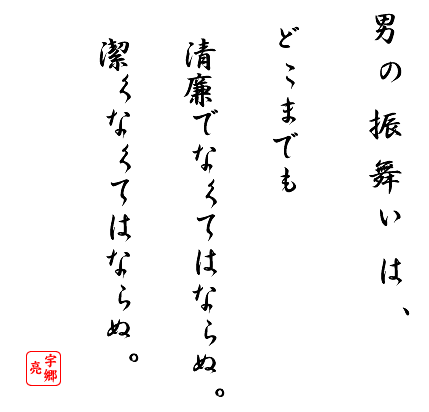 男の振舞いは、
どこまでも
清廉でなくてはならぬ。
潔くなくてはならぬ。
宇郷
亮